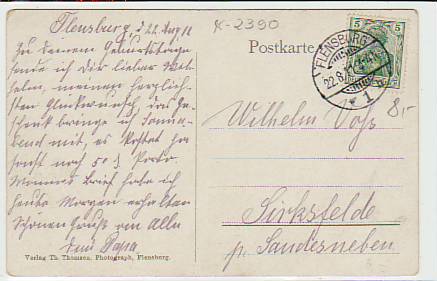 Flensburg, d 22 Aug 11
Zu deinem Geburtstage
sende ich dir lieber Wil-
helm, meinen herzlich-
sten Glückwunsch, das Ge-
schenk bringe ich Sonna-
bend mit, es kostet ja
sonst noch 50 ₰ Porto
Mamas Brief habe ich
heute Morgen erhalten
Schönen Gruß an Alle
dein Papa
Verlag Th. Thomsen, Photograph, Flensburg.
K-2390
Postkarte
5 5
FLENSBURG
22.8.
1
8,-
Wilhelm Voß
Sirksfelde
p. Sandesneben